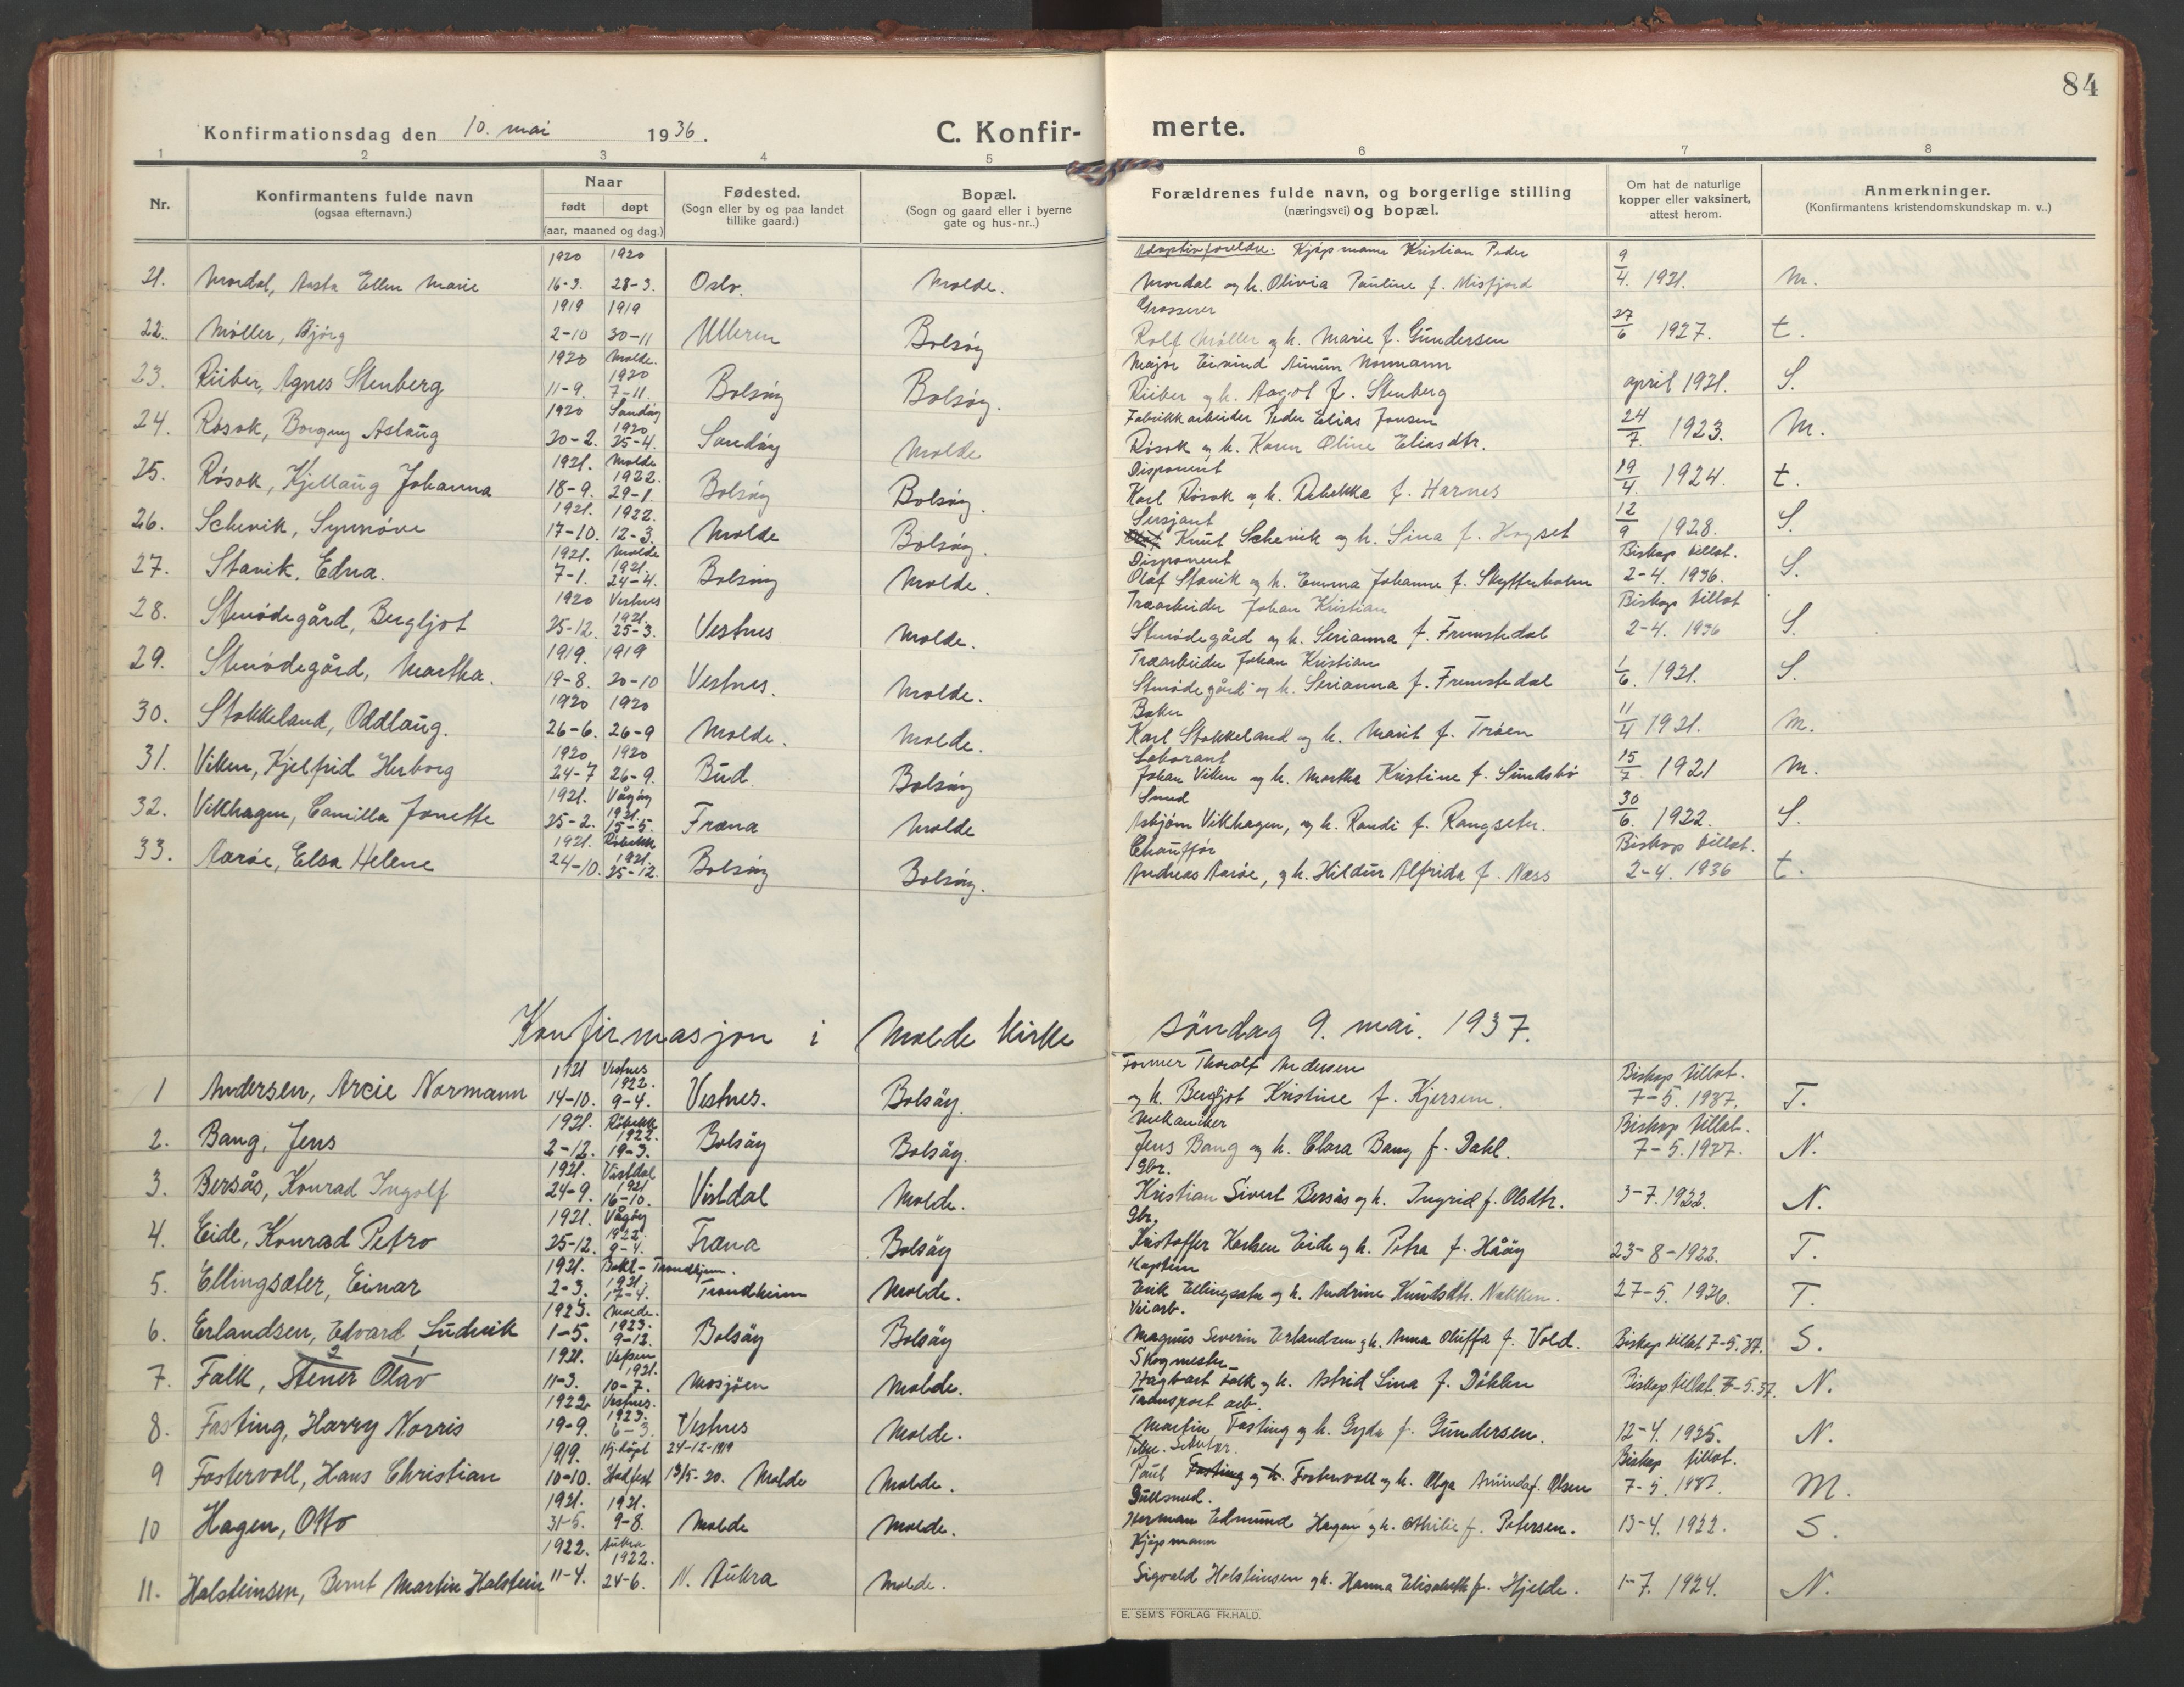 84
Konfirmationsdag den 10. mai 1936. C. Konfir- merte.
1 2 3 4 5 6 7 8
Nr. Konfirmantens fulde navn (ogsaa efternavn.) Naar født døpt (aar, maaned og dag.) Fødested. (Sogn eller by og paa landet tillike gaard.) Bopæl. (Sogn og gaard eller i byerne gate og hus-nr..) Forældrenes fulde navn, og borgerlige stilling (næringsvei) og bopæl. Om hat de naturlige kopper eller vaksinert, attest herom. Anmerkninger. (Konfirmantens kristendomskundskap m. v..)
1920 1920 Adoptivforeldre. Kjøpmann Kristian Peder 9
21. Mordal, Aasta Ellen Marie 16-3. 28-3. Oslo. Molde. Mordal og h. Olivia Pauline f. Misfjord 4. 1921. M.
1919 1919 Grosserer 27
22. Møller, Bjørg 2-10 30-11 Ullern Bolsøy Rolf Møller og h. Marie f. Gundersen 6 1927. t.
1920 Molde. 1920 Major Eivind Normann
23. Riiber, Agnes Stenberg 11-9. 7-11. Bolsøy Bolsøy. Riiber og h. Aagot f. Stenberg april 1921. S.
1920 Sandøy 1920 Fabrikkarbeider Peder Elias Jonsen 24
24. Røsok, Borgny Aslaug 20-2. 25-4. Sandøy Molde Røsok og h. Karen Oline Eliasdtr. 7. 1923. M.
1921. Molde 1922. Disponent 19
25. Røsok, Kjellaug Johanna 18-9. 29-1. Bolsøy Bolsøy. Karl Røsok og h. Rebekka f. Harnes 4. 1924. t.
1921. 1922. Sersjant 12
26. Schevik, Synnøve 17-10. 12-3. Molde Bolsøy. Knut Schevik og h. Sina f. Hogset 9 1928. S.
1921. Molde 1921. Disponent Biskop tillat.
27. Stavik, Edna. 7-1. 24-4. Bolsøy Molde. Olaf Stavik og h. Emma Johanne f. Skytterholm 2-4. 1936. S.
1920 Vestnes 1921. Træarbeider Johan Kristian Biskop tillat
28. Stenødegård, Bergljot 25-12. 25-3. Vestnes Molde. Stenødegård og h. Serianna f. Fremstedal 2-4. 1936 S.
1919. 1919 Træarbeider Johan Kristian 1
29. Stenødegård, Martha. 19-8. 20-10 Vestnes. Molde. Stenødegård og h. Serianna f. Fremstedal 6. 1921. S.
1920 1920 Baker 11
30. Stokkeland, Oddlaug. 26-6. 26-9 Molde. Molde. Karl Stokkeland og h. Marit f. Trøen 4 1921. M.
1920 1920 Laborant 15
31. Viken, Kjelfrid Herborg 24-7 26-9. Bud. Bolsøy Johan Viken og h. Martha Kristine f. Sundsbø 7. 1921 M.
1921. Vågøy 1921. Smed 30
32. Vikhagen, Camilla Jonette 25-2. 15-5. Fræna Molde Asbjørn Vikhagen, og h. Randi f. Rangseter. 6. 1922. S.
1921. Røbekk 1921. Chauffør Biskop tillat.
33. Aarøe, Elsa Helene 24-10. 25-12. Bolsøy Bolsøy. Andreas Aarøe, og h. Hildur Alfrida f. Næss 2-4. 1936 t.
Konfirmasjon i Molde kirke søndag 9. mai. 1937.
1921 Vestnes 1922. Former Thoralf Andersen Biskop tillat.
1 Andersen, Arcie Normann 14-10. 9-4. Vestnes. Bolsøy. og h. Bergljot Kristine f. Kjersem. 7-5. 1937. T.
1921. Røbekk 1922. Mekaniker Biskop tillat.
2. Bang, Jens 2-12. 19-3. Bolsøy Bolsøy. Jens Bang og h. Clara Bang f. Dahl. 7-5. 1937. N.
1921. Vistdal 1921 Gbr.
3. Bersås, Konrad Ingolf 24-9. 16-10. Vistdal Molde. Kristian Sivert Bersås og h. Ingrid f. Olsdtr. 3-7. 1922. N.
1921. Vågøy 1922. Gbr.
4. Eide, Konrad Petro 25-12. 9-4. Fræna Bolsøy Kristoffer Karlsen Eide og h. Petra f. Håøy 23-8-1922. T.
1921. Bakl-Trondhjem. 1921. Kaptein
5. Ellingsæter, Einar 2-3. 17-4. Trondheim Molde. Erik Ellingsæter og h. Andrine Knutsdtr. Nakken. 27-5. 1926. T.
1923. Molde. 1923. Veiarb.
6. Erlandsen, Edvard Ludvik 1-5. 9-12. Bolsøy Bolsøy Magnus Severin Erlandsen og h. Anna Oluffa f. Vold. Biskop tillat 7-5.37. S.
2 1 1921. Vefsen 1921. Skogmester
7. Falk, Stener Olav 11-3. 10-7. Mosjøen Molde. Hagbart Falk og h. Astrid Lina f. Døhlen Biskop tillat. 7-5.37. N.
1922 Vestnes. 1923. Transport arb.
8. Fasting, Harry Norris 19-9. 6-3. Vestnes Molde. Martin Fasting og h. Gyda f. Gundersen. 12-4. 1925. N.
1919. Hj.døpt 24-12-1919 Sekretær. Biskop tillat.
9 Fostervoll, Hans Christian 10-10. Stadfest 13/5-20. Molde Molde. Paul Fasting og h. Fostervoll og h. Olga Aminda f. Olsen 7-5. 1937. M.
1921. 1921. Gullsmed.
10 Hagen, Otto 31-5. 9-8. Molde Molde. Herman Edmund Hagen og h. Othilie f. Petersen. 13-4. 1922. S.
1922. Aukra 1922. Kjøpmann
11. Halsteinsen, Bernt Martin Halstein 11-4. 24-6. N. Aukra Molde. Sigvald Holsteinsen og h. Hanna Elisabeth f. Hjelde. 1-7. 1924. N.
E. SEM'S FORLAG FR.HALD.